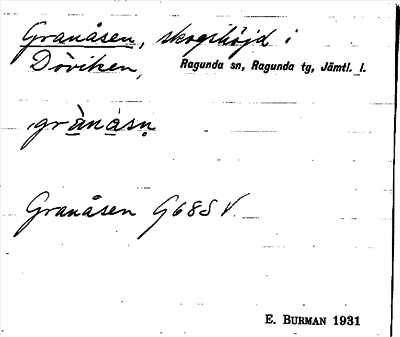 Granåsen, skogshöjd i
Döviken, Ragunda sn, Ragunda tg, Jämtl. l.
grànàsṇ
Granåsen G68S V.
E. BURMAN 1931